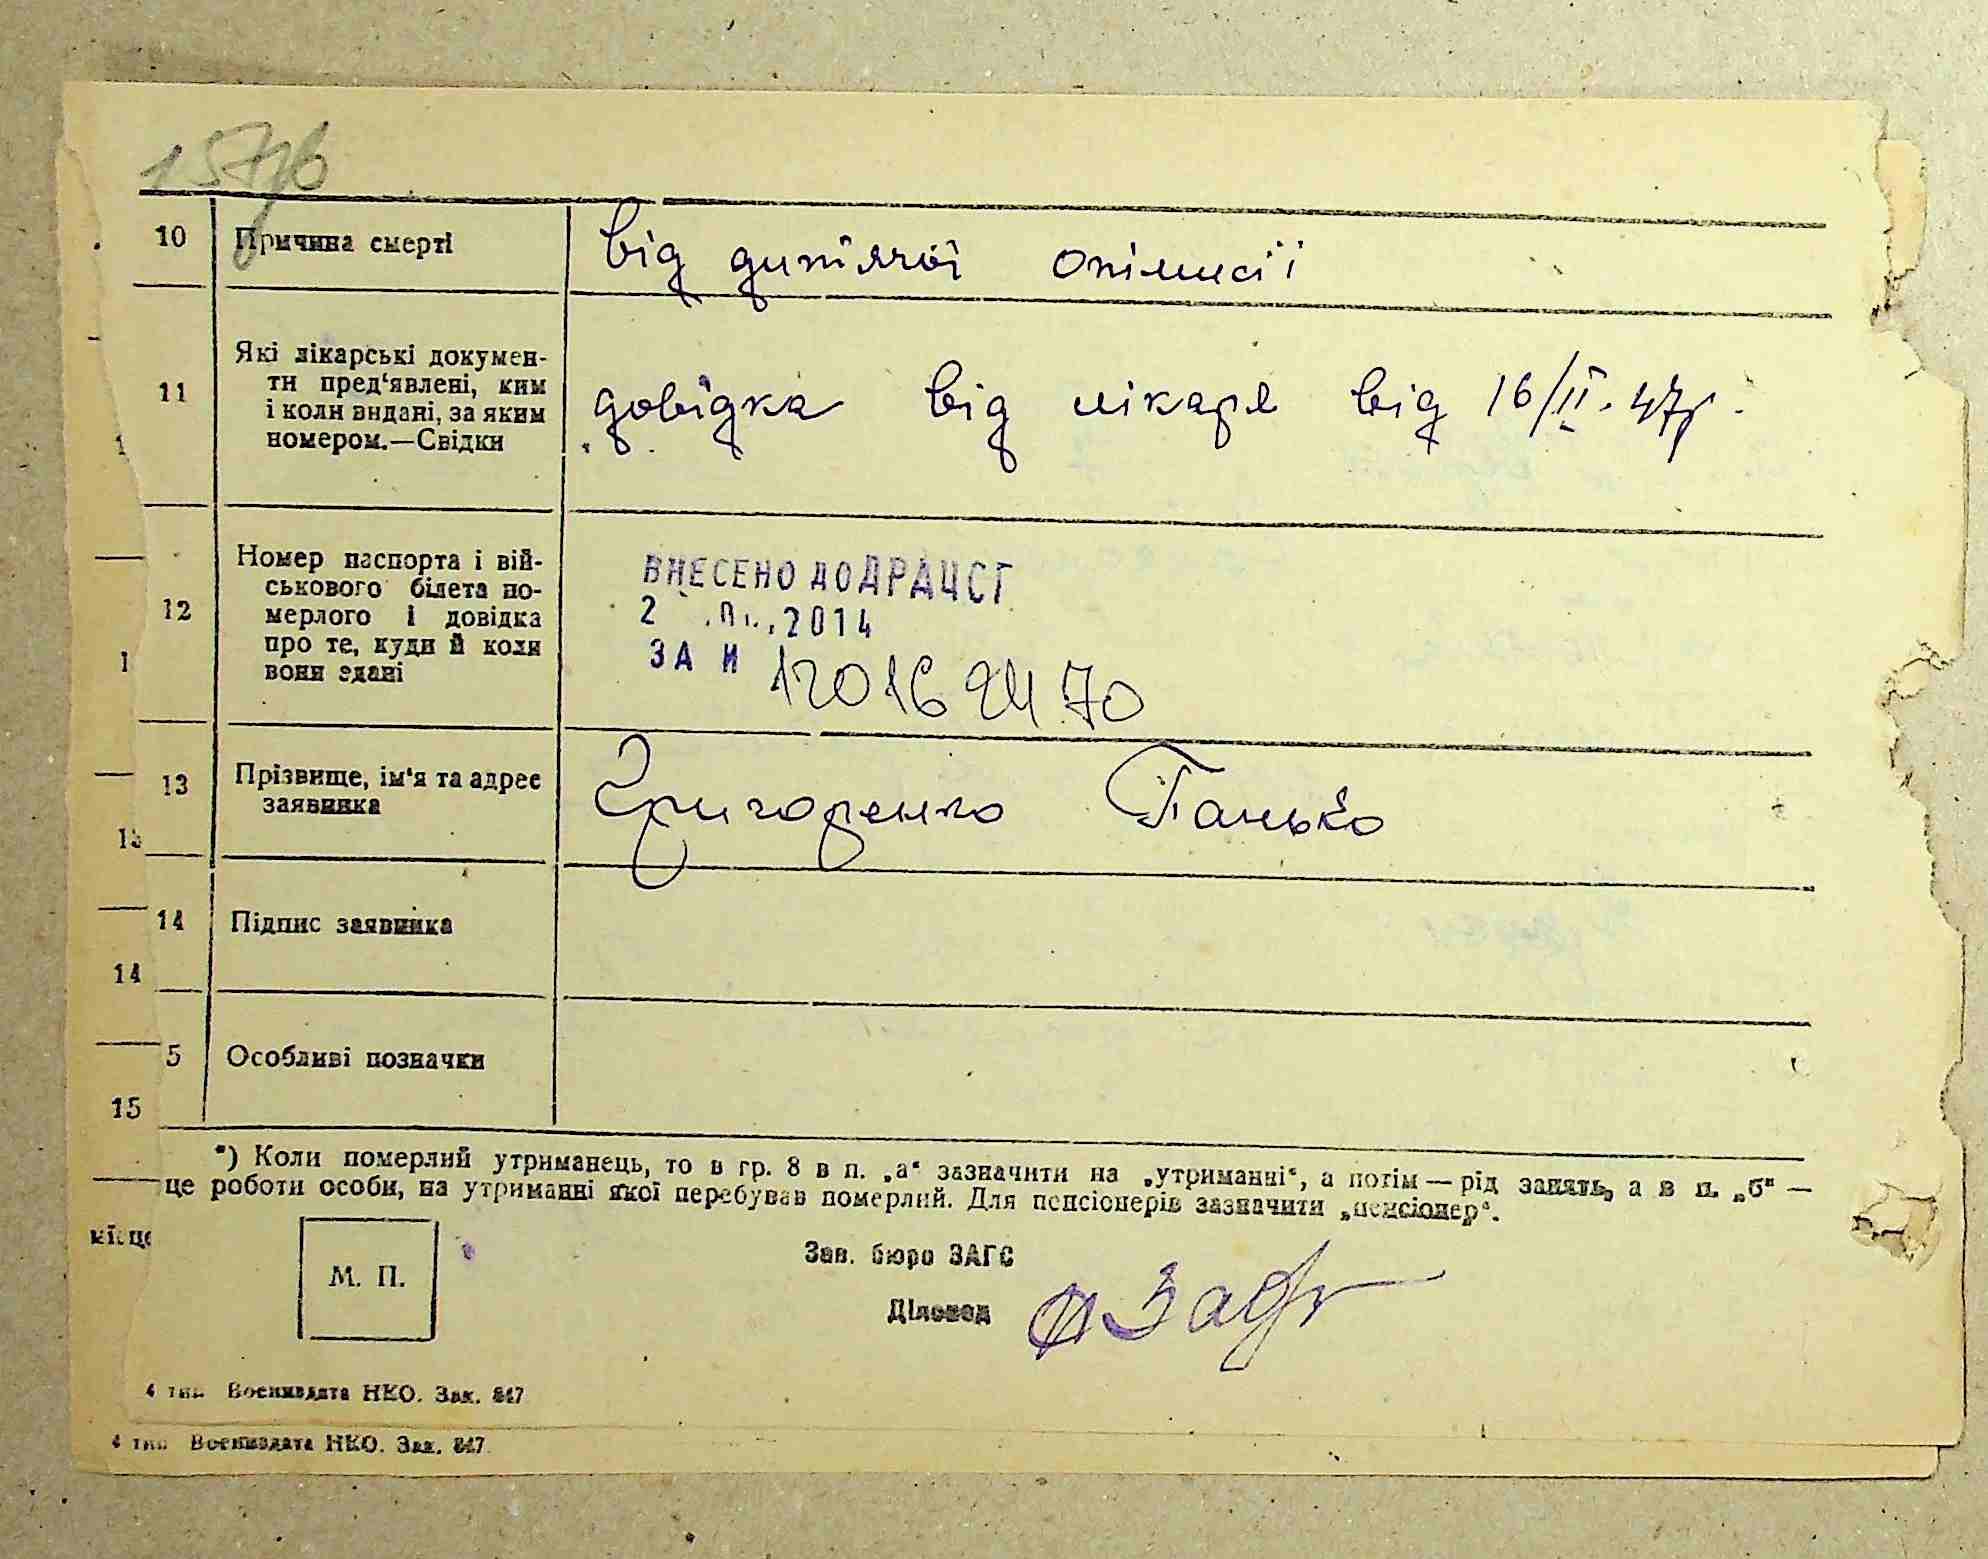 157зв
10 Причина смерті від дитячої опілисії
11 Які лікарські докумен-
ти пред'явлені, ким
і коли видані, за яким
номером.—Свідки
довідка від лікаря від 16/II. 47р.
12 Номер паспорта і вій-
ськового білета по-
мерлого і довідка
про те, куди й коли
вони здані
ВНЕСЕНО ДО ДРАЦСГ
2 2014
ЗА И 1201692470
13 Прізвище, ім'я та адрес
заявника
Григоренко Панько
14 Підпис заявника
14
5 Особливі позначки
15
*) Коли померлий утриманець, то в гр. 8 в п. „а“ зазначити на „утриманні“, а потім — рід занять, а в п. „б“ —
це роботи особи, на утриманні якої перебував померлий. Для пенсіонерів зазначити „пенсіонер“.
місце
М. П.
Зав. бюро ЗАГС
Діловод
4 тип Воениздата НКО. Зак. 847
4 тип Воениздата НКО. Зак. 847